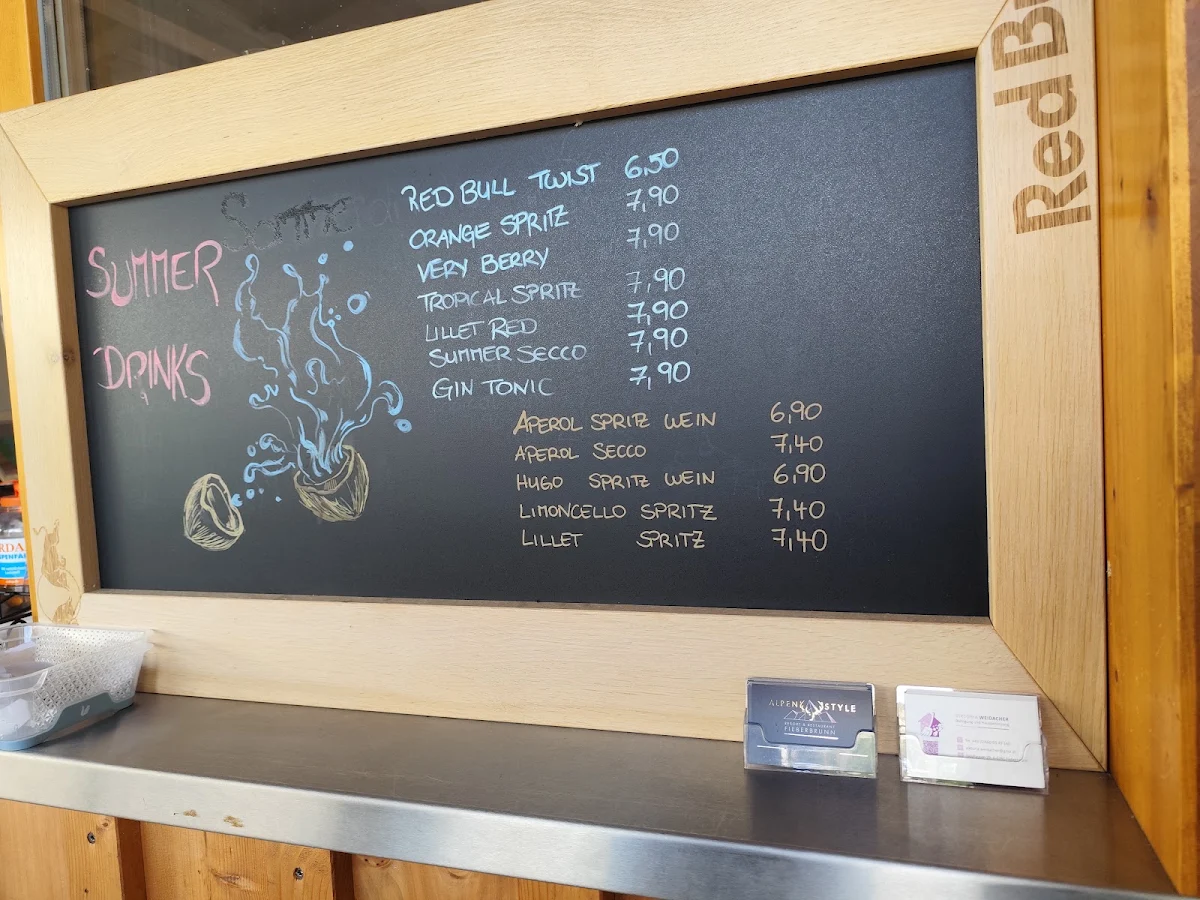 Somme
SUMMER
DRINKS
RED BULL TWIST 6,50
ORANGE SPRITZ 7,90
VERY BERRY 7,90
TROPICAL SPRITZ 7,90
LILLET RED 7,90
SUMMER SECCO 7,90
GIN TONIC 7,90
APEROL SPRITZ WEIN 6,90
APEROL SECCO 7,40
HUGO SPRITZ WEIN 6,90
LIMONCELLO SPRITZ 7,40
LILLET SPRITZ 7,40
Red Bu
ALPENSTYLE
RESORT & RESTAURANT
FIEBERBRUNN
WEIDACHER